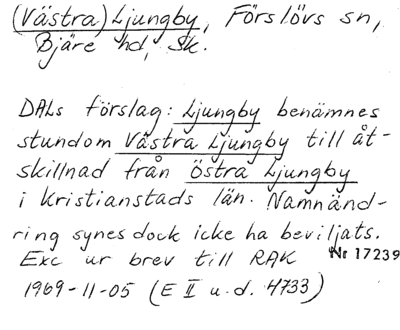 (Västra) Ljungby, Förslövs sn,
Bjäre hd, Sk.
DALs förslag: Ljungby benämnes
stundom Västra Ljungby till åt-
skillnad från Östra Ljungby
i Kristianstads län. Namnänd-
ring synes dock icke ha beviljats.
Exc ur brev till RAK Nr 17239
1969-11-05 (E II u.d. 4733)